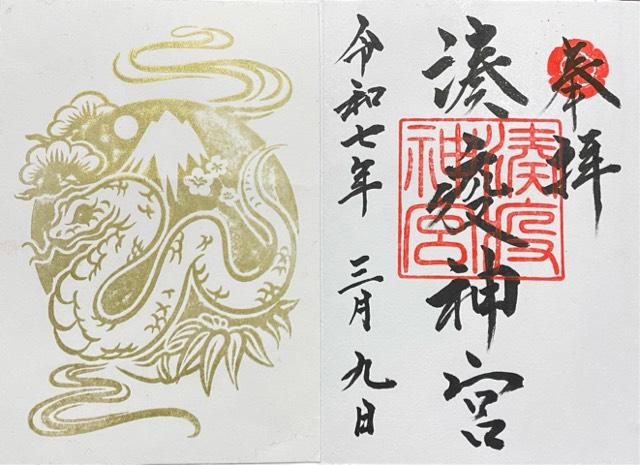 奉拝
湊疫神宮
湊疫
神宮
令和七年 三月 九日